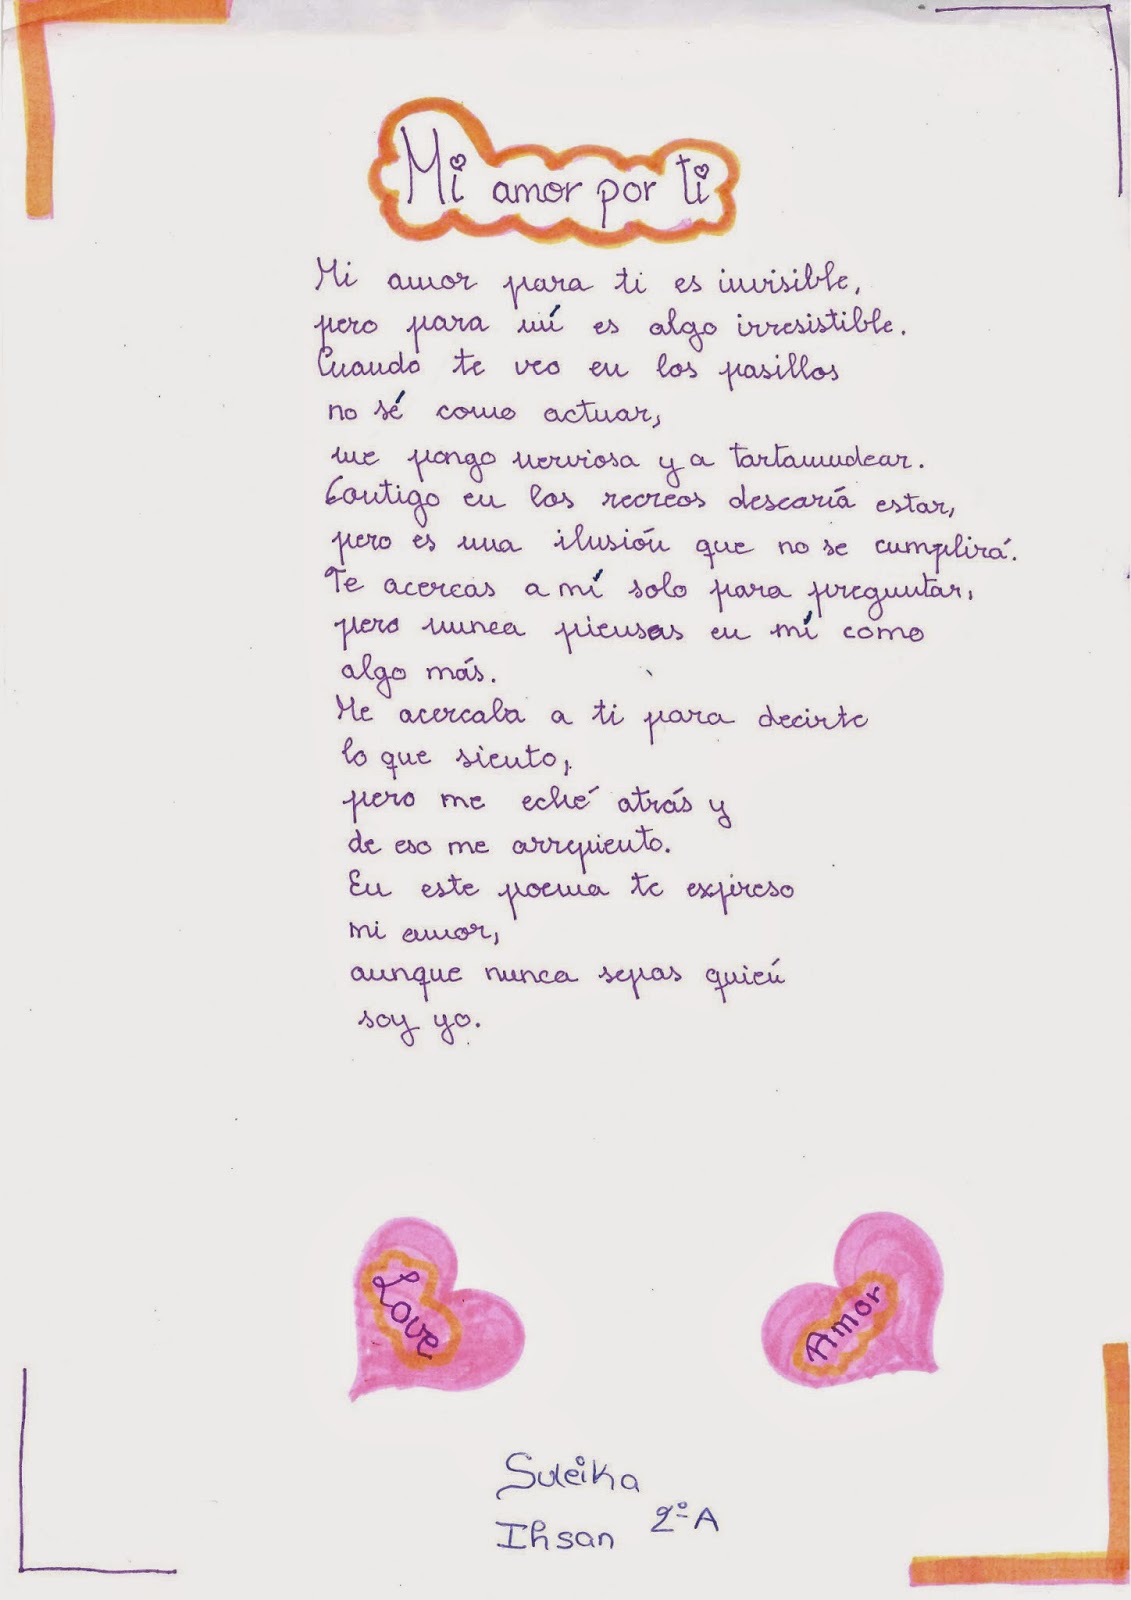 Mi amor por ti
Mi amor para ti es invisible,
pero para mí es algo irresistible.
Cuando te veo en los pasillos
no sé como actuar,
me pongo nerviosa y a tartamudear.
Contigo en los recreos desearía estar,
pero es una ilusión que no se cumplirá.
Te acercas a mí solo para preguntar,
pero nunca piensas en mí como
algo más.
Me acercaba a ti para decirte
lo que siento,
pero me eché atrás y
de eso me arrepiento.
En este poema te expreso
mi amor,
aunque nunca sepas quién
soy yo.
Love
Amor
Suleika
Ihsan 2º A